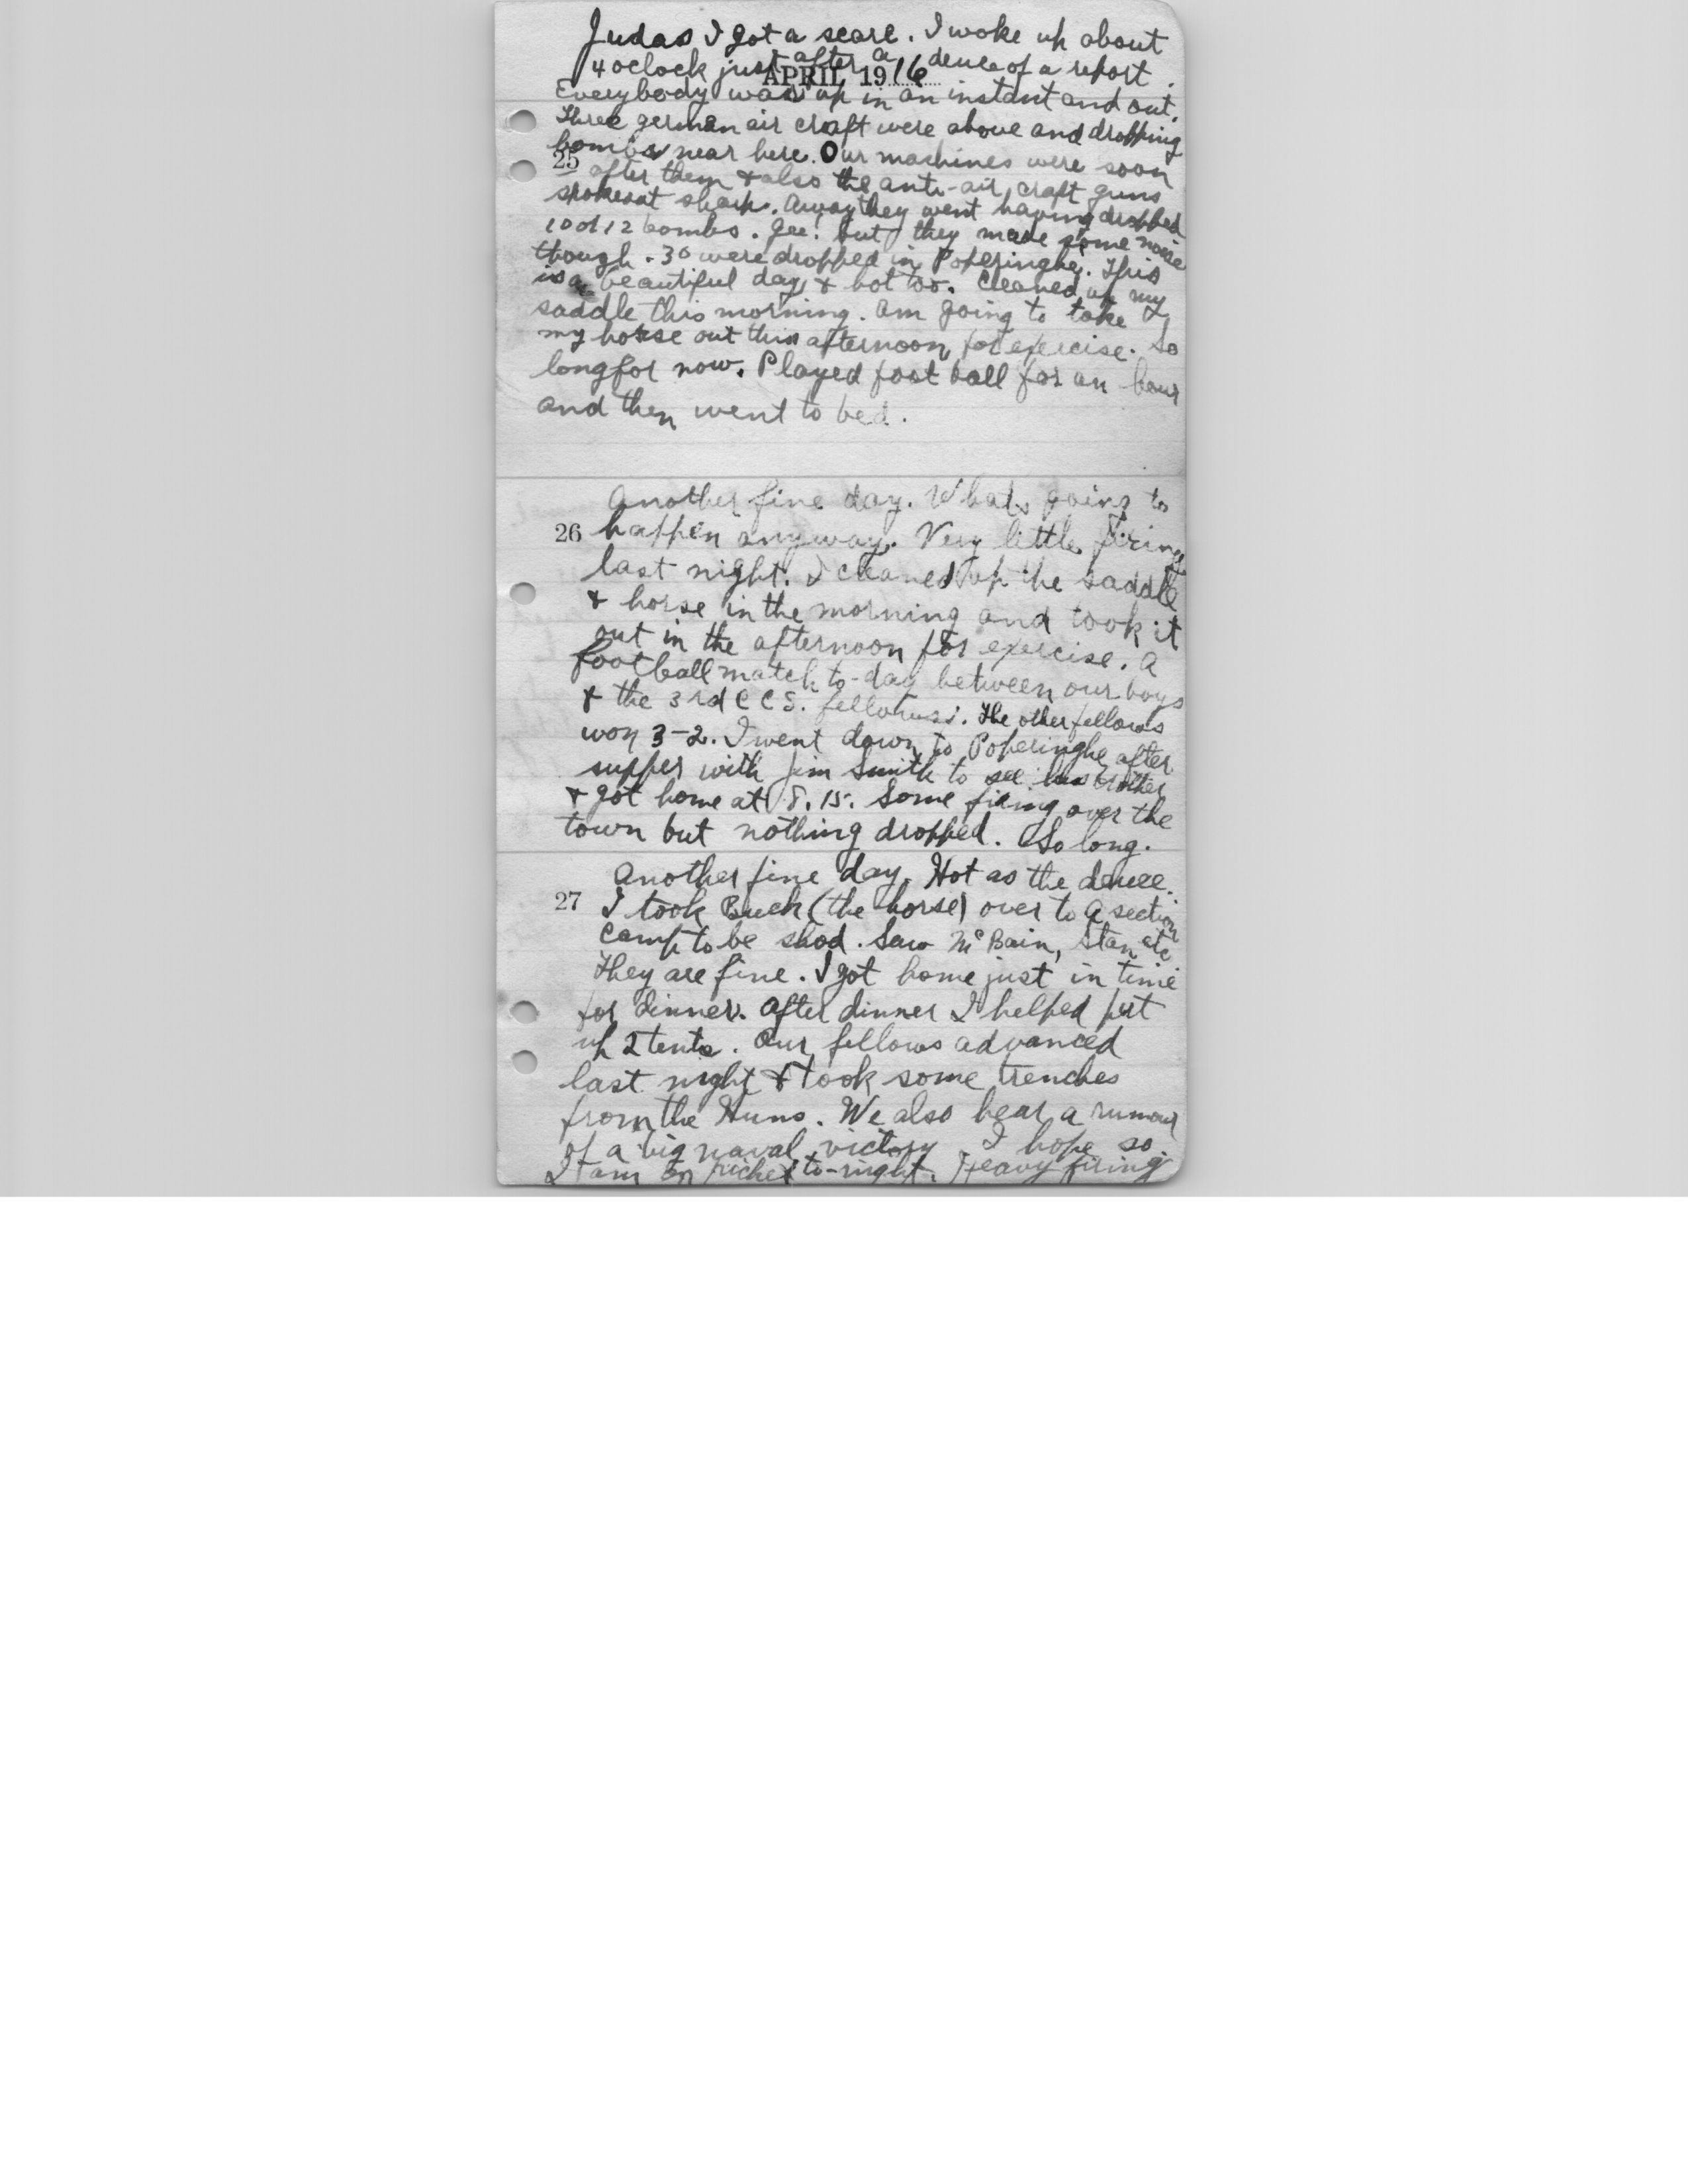 Judas I got a scare. I woke up about
4 oclock just after a deuce of a report.
APRIL 1916
Everybody was up in an instant and out.
Three german air craft were above and dropping
bombs near here. Our machines were soon
25
after them & also the anti-air craft guns
spoke out sharp. Away they went having dropped
10 or 12 bombs. Gee! but they made some noise
though. 30 were dropped in Poperinghe. This
is a beautiful day & hot too. Cleaned up my
saddle this morning. Am going to take
my horse out this afternoon for exercise. So
long for now. Played foot ball for an hour
and then went to bed.
Another fine day. Whats going to
26 happen anyway. Very little firing
last night. I cleaned up the saddle
& horse in the morning and took it
out in the afternoon for exercise. A
football match to-day between our boys
& the 3rd C C S. fellows. The other fellows
won 3-2. I went down to Poperinghe after
supper with Jim Smith to see his brother
& got home at 8.15. Some firing over the
town but nothing dropped. So long.
Another fine day. Hot as the deuce.
27 I took Buck (the horse) over to A section
camp to be shod. Saw McBain, Stan etc
They are fine. I got home just in time
for dinner. After dinner I helped put
up 2 tents. Our fellows advanced
last night & took some trenches
from the Huns. We also hear a rumour
of a big naval victory I hope so.
I am on picket to-night. Heavy firing